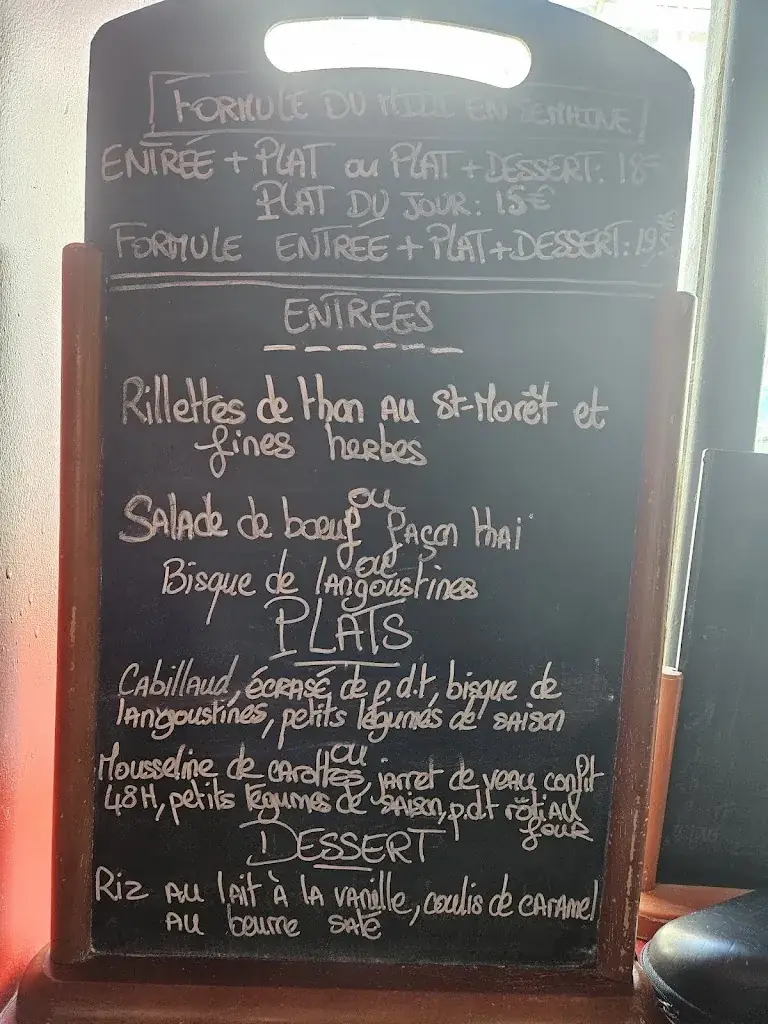 FORMULE DU MIDI EN SEMAINE
ENTRÉE + PLAT ou PLAT + DESSERT: 18€
PLAT DU JOUR: 15€
FORMULE ENTRÉE + PLAT + DESSERT: 19,
ENTRÉES
Rillettes de thon AU St-Morêt et
fines herbes
ou
Salade de boeuf façon thaï
ou
Bisque de langoustines
PLATS
Cabillaud, écrasé de p.d.t, bisque de
langoustines, petits légumes de saison
ou
Mousseline de carottes, jarret de veau confit
48H, petits légumes de saison, p.d.t rôti au
four
DESSERT
Riz au lait à la vanille, coulis de caramel
au beurre salé